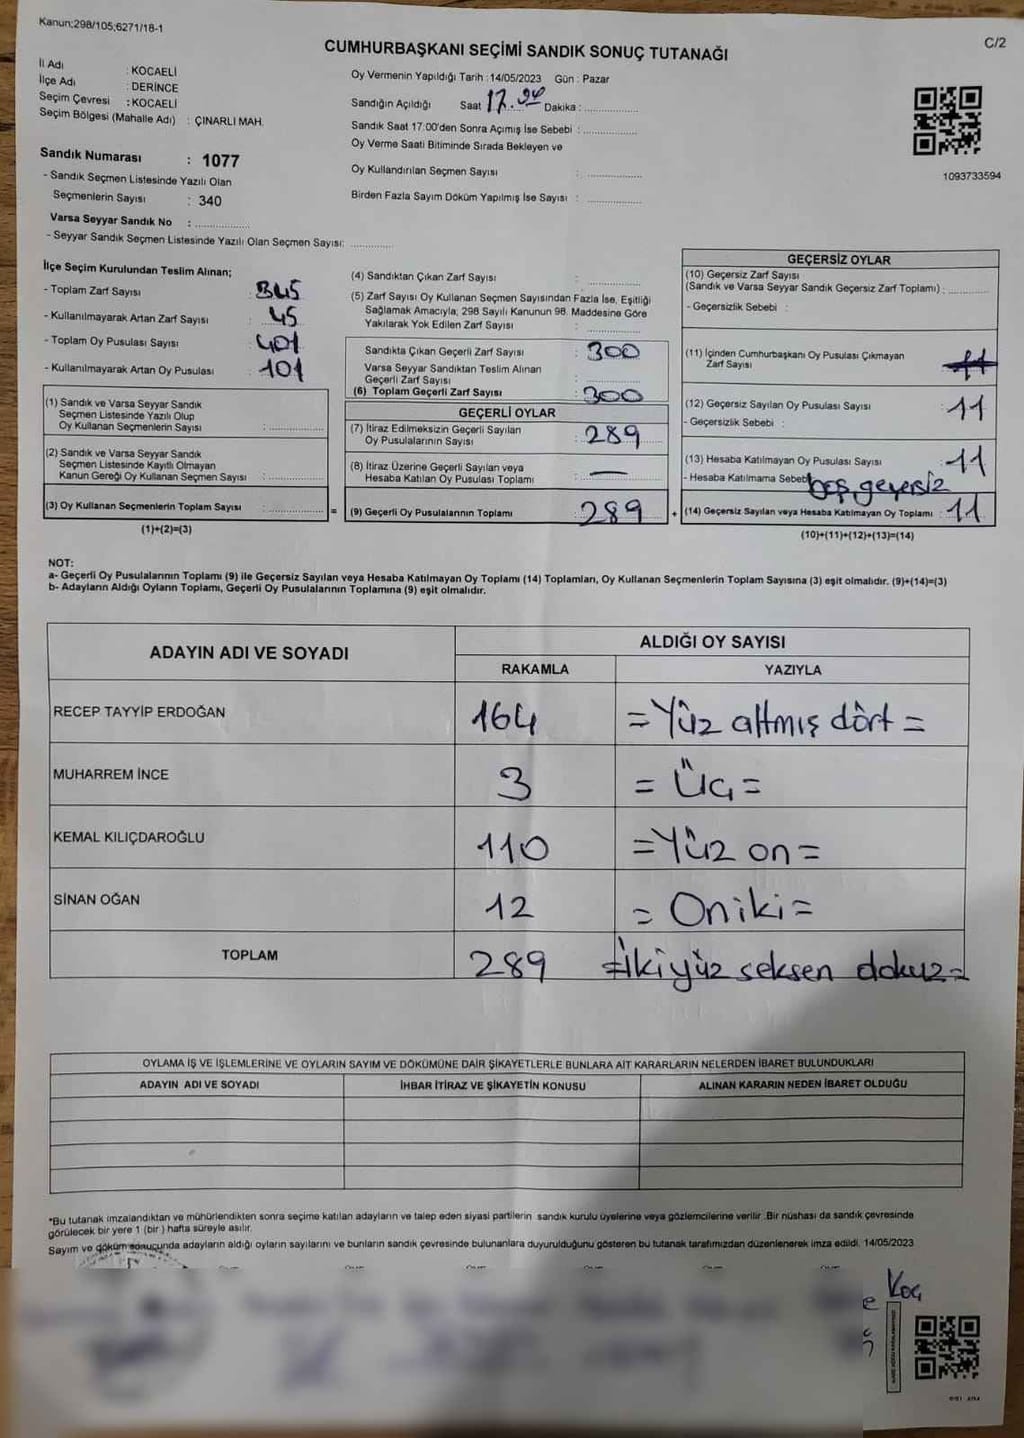 Kanun;298/105;6271/18-1
C/2
CUMHURBAŞKANI SEÇİMİ SANDIK SONUÇ TUTANAĞI
İl Adı : KOCAELİ
İlçe Adı : DERİNCE
Seçim Çevresi : KOCAELİ
Seçim Bölgesi (Mahalle Adı) : ÇINARLI MAH.
Sandık Numarası : 1077
- Sandık Seçmen Listesinde Yazılı Olan
Seçmenlerin Sayısı : 340
Varsa Seyyar Sandık No : ..............
- Seyyar Sandık Seçmen Listesinde Yazılı Olan Seçmen Sayısı: ............
Oy Vermenin Yapıldığı Tarih : 14/05/2023 Gün : Pazar
Sandığın Açıldığı Saat 17.24 Dakika : ..............
Sandık Saat 17:00'den Sonra Açımış İse Sebebi : ..............
Oy Verme Saati Bitiminde Sırada Bekleyen ve
Oy Kullandırılan Seçmen Sayısı : ..............
Birden Fazla Sayım Döküm Yapılmış İse Sayısı : ..............
1093733594
İlçe Seçim Kurulundan Teslim Alınan;
- Toplam Zarf Sayısı : 345
- Kullanılmayarak Artan Zarf Sayısı : 45
- Toplam Oy Pusulası Sayısı : 401
- Kullanılmayarak Artan Oy Pusulası : 101
(1) Sandık ve Varsa Seyyar Sandık
Seçmen Listesinde Yazılı Olup
Oy Kullanan Seçmenlerin Sayısı : ..............
(2) Sandık ve Varsa Seyyar Sandık
Seçmen Listesinde Kayıtlı Olmayan
Kanun Gereği Oy Kullanan Seçmen Sayısı : ..............
(3) Oy Kullanan Seçmenlerin Toplam Sayısı : .............. =
(1)+(2)=(3)
(4) Sandıktan Çıkan Zarf Sayısı : ..............
(5) Zarf Sayısı Oy Kullanan Seçmen Sayısından Fazla İse, Eşitliği
Sağlamak Amacıyla; 298 Sayılı Kanunun 98. Maddesine Göre
Yakılarak Yok Edilen Zarf Sayısı : ..............
Sandıkta Çıkan Geçerli Zarf Sayısı : 300
Varsa Seyyar Sandıktan Teslim Alınan
Geçerli Zarf Sayısı : ..............
(6) Toplam Geçerli Zarf Sayısı : 300
GEÇERLİ OYLAR
(7) İtiraz Edilmeksizin Geçerli Sayılan
Oy Pusulalarının Sayısı : 289
(8) İtiraz Üzerine Geçerli Sayılan veya
Hesaba Katılan Oy Pusulası Toplamı : —
(9) Geçerli Oy Pusulalarının Toplamı : 289 +
GEÇERSİZ OYLAR
(10) Geçersiz Zarf Sayısı
(Sandık ve Varsa Seyyar Sandık Geçersiz Zarf Toplamı) : ..............
- Geçersizlik Sebebi :
(11) İçinden Cumhurbaşkanı Oy Pusulası Çıkmayan
Zarf Sayısı : 11
(12) Geçersiz Sayılan Oy Pusulası Sayısı : 11
- Geçersizlik Sebebi :
(13) Hesaba Katılmayan Oy Pusulası Sayısı : 11
- Hesaba Katılmama Sebebi boş geçersiz
(14) Geçersiz Sayılan veya Hesaba Katılmayan Oy Toplamı : 11
(10)+(11)+(12)+(13)=(14)
NOT:
a- Geçerli Oy Pusulalarının Toplamı (9) ile Geçersiz Sayılan veya Hesaba Katılmayan Oy Toplamı (14) Toplamları, Oy Kullanan Seçmenlerin Toplam Sayısına (3) eşit olmalıdır. (9)+(14)=(3)
b- Adayların Aldığı Oyların Toplamı, Geçerli Oy Pusulalarının Toplamına (9) eşit olmalıdır.
ADAYIN ADI VE SOYADI
ALDIĞI OY SAYISI
RAKAMLA YAZIYLA
RECEP TAYYİP ERDOĞAN 164 = Yüz altmış dört =
MUHARREM İNCE 3 = Üç =
KEMAL KILIÇDAROĞLU 110 = Yüz on =
SİNAN OĞAN 12 = Oniki =
TOPLAM 289 =İkiyüz seksen dokuz=
OYLAMA İŞ VE İŞLEMLERİNE VE OYLARIN SAYIM VE DÖKÜMÜNE DAİR ŞİKAYETLERLE BUNLARA AİT KARARLARIN NELERDEN İBARET BULUNDUKLARI
ADAYIN ADI VE SOYADI İHBAR İTİRAZ VE ŞİKAYETİN KONUSU ALINAN KARARIN NEDEN İBARET OLDUĞU
*Bu tutanak imzalandıktan ve mühürlendikten sonra seçime katılan adayların ve talep eden siyasi partilerin sandık kurulu üyelerine veya gözlemcilerine verilir .Bir nüshası da sandık çevresinde
görülecek bir yere 1 (bir ) hafta süreyle asılır.
Sayım ve döküm sonucunda adayların aldığı oyların sayılarını ve bunların sandık çevresinde bulunanlara duyurulduğunu gösteren bu tutanak tarafımızdan düzenlenerek imza edildi. 14/05/2023
Koç